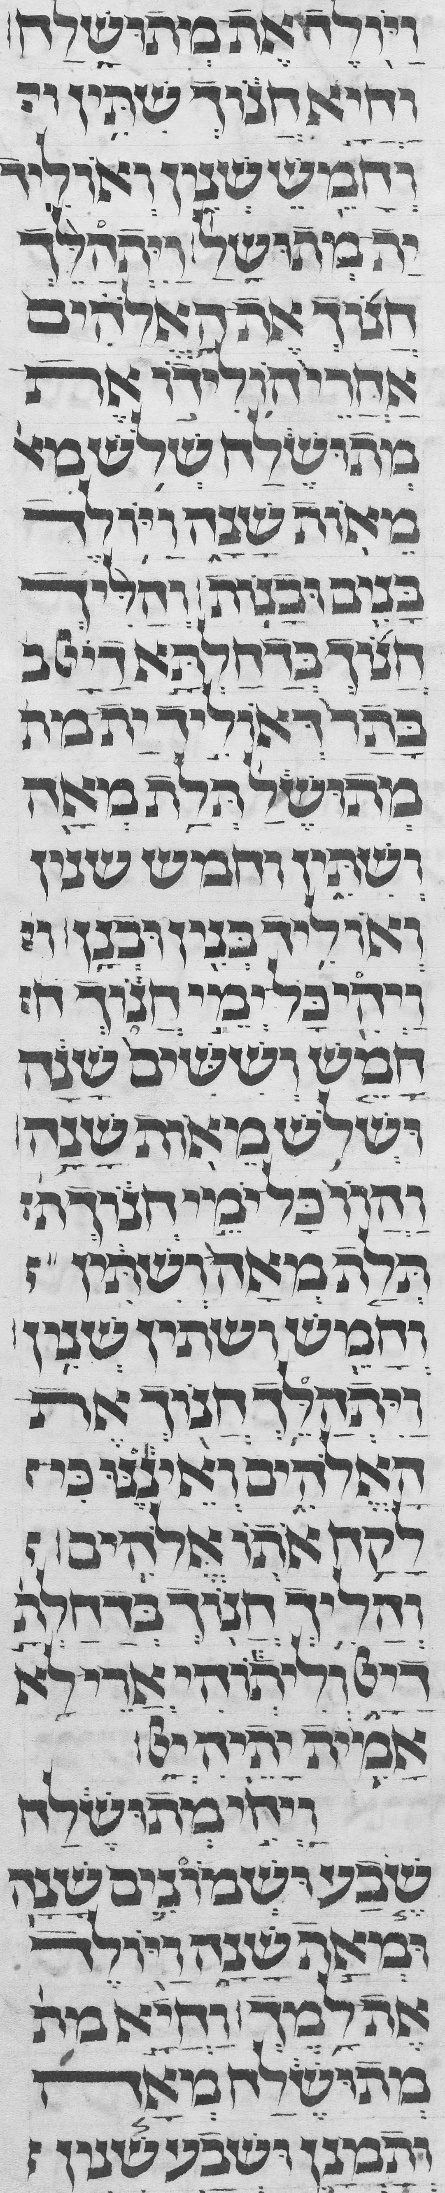 ויולד את מתושלח
וחיא חנוך שתין וי
וחמש שנין ואוליד
ית מתושל ויתהלך
חנוך את האלהים
אחרי הולידו את
מתושלח שלש מא
מאות שנה ויולד
בנים ובנות והליך
חנוך בדחלתא דייט ב
בתר דאוליד ית מת
מתושל תלת מאה
ושתין וחמש שנין
ואוליד בנין ובנן וי
ויהי כל ימי חנוך ח
חמש וששים שנה
ושלש מאות שנה
והוו כל יומי חנוך ת
תלת מאה ושתין
וחמש ושתין שנין
ויתהלך חנוך את
האלהים ואיננו כי
לקח אתו אלהים
והליך חנוך בדחלת
דייט וליתוהי ארי לא
אמית יתיה ייט
ויחי מתושלח
שבע ושמונים שנה
ומאת שנה ויולד
את למך וחיא מת
מתושלח מאה
ותמנן ושבע שנין